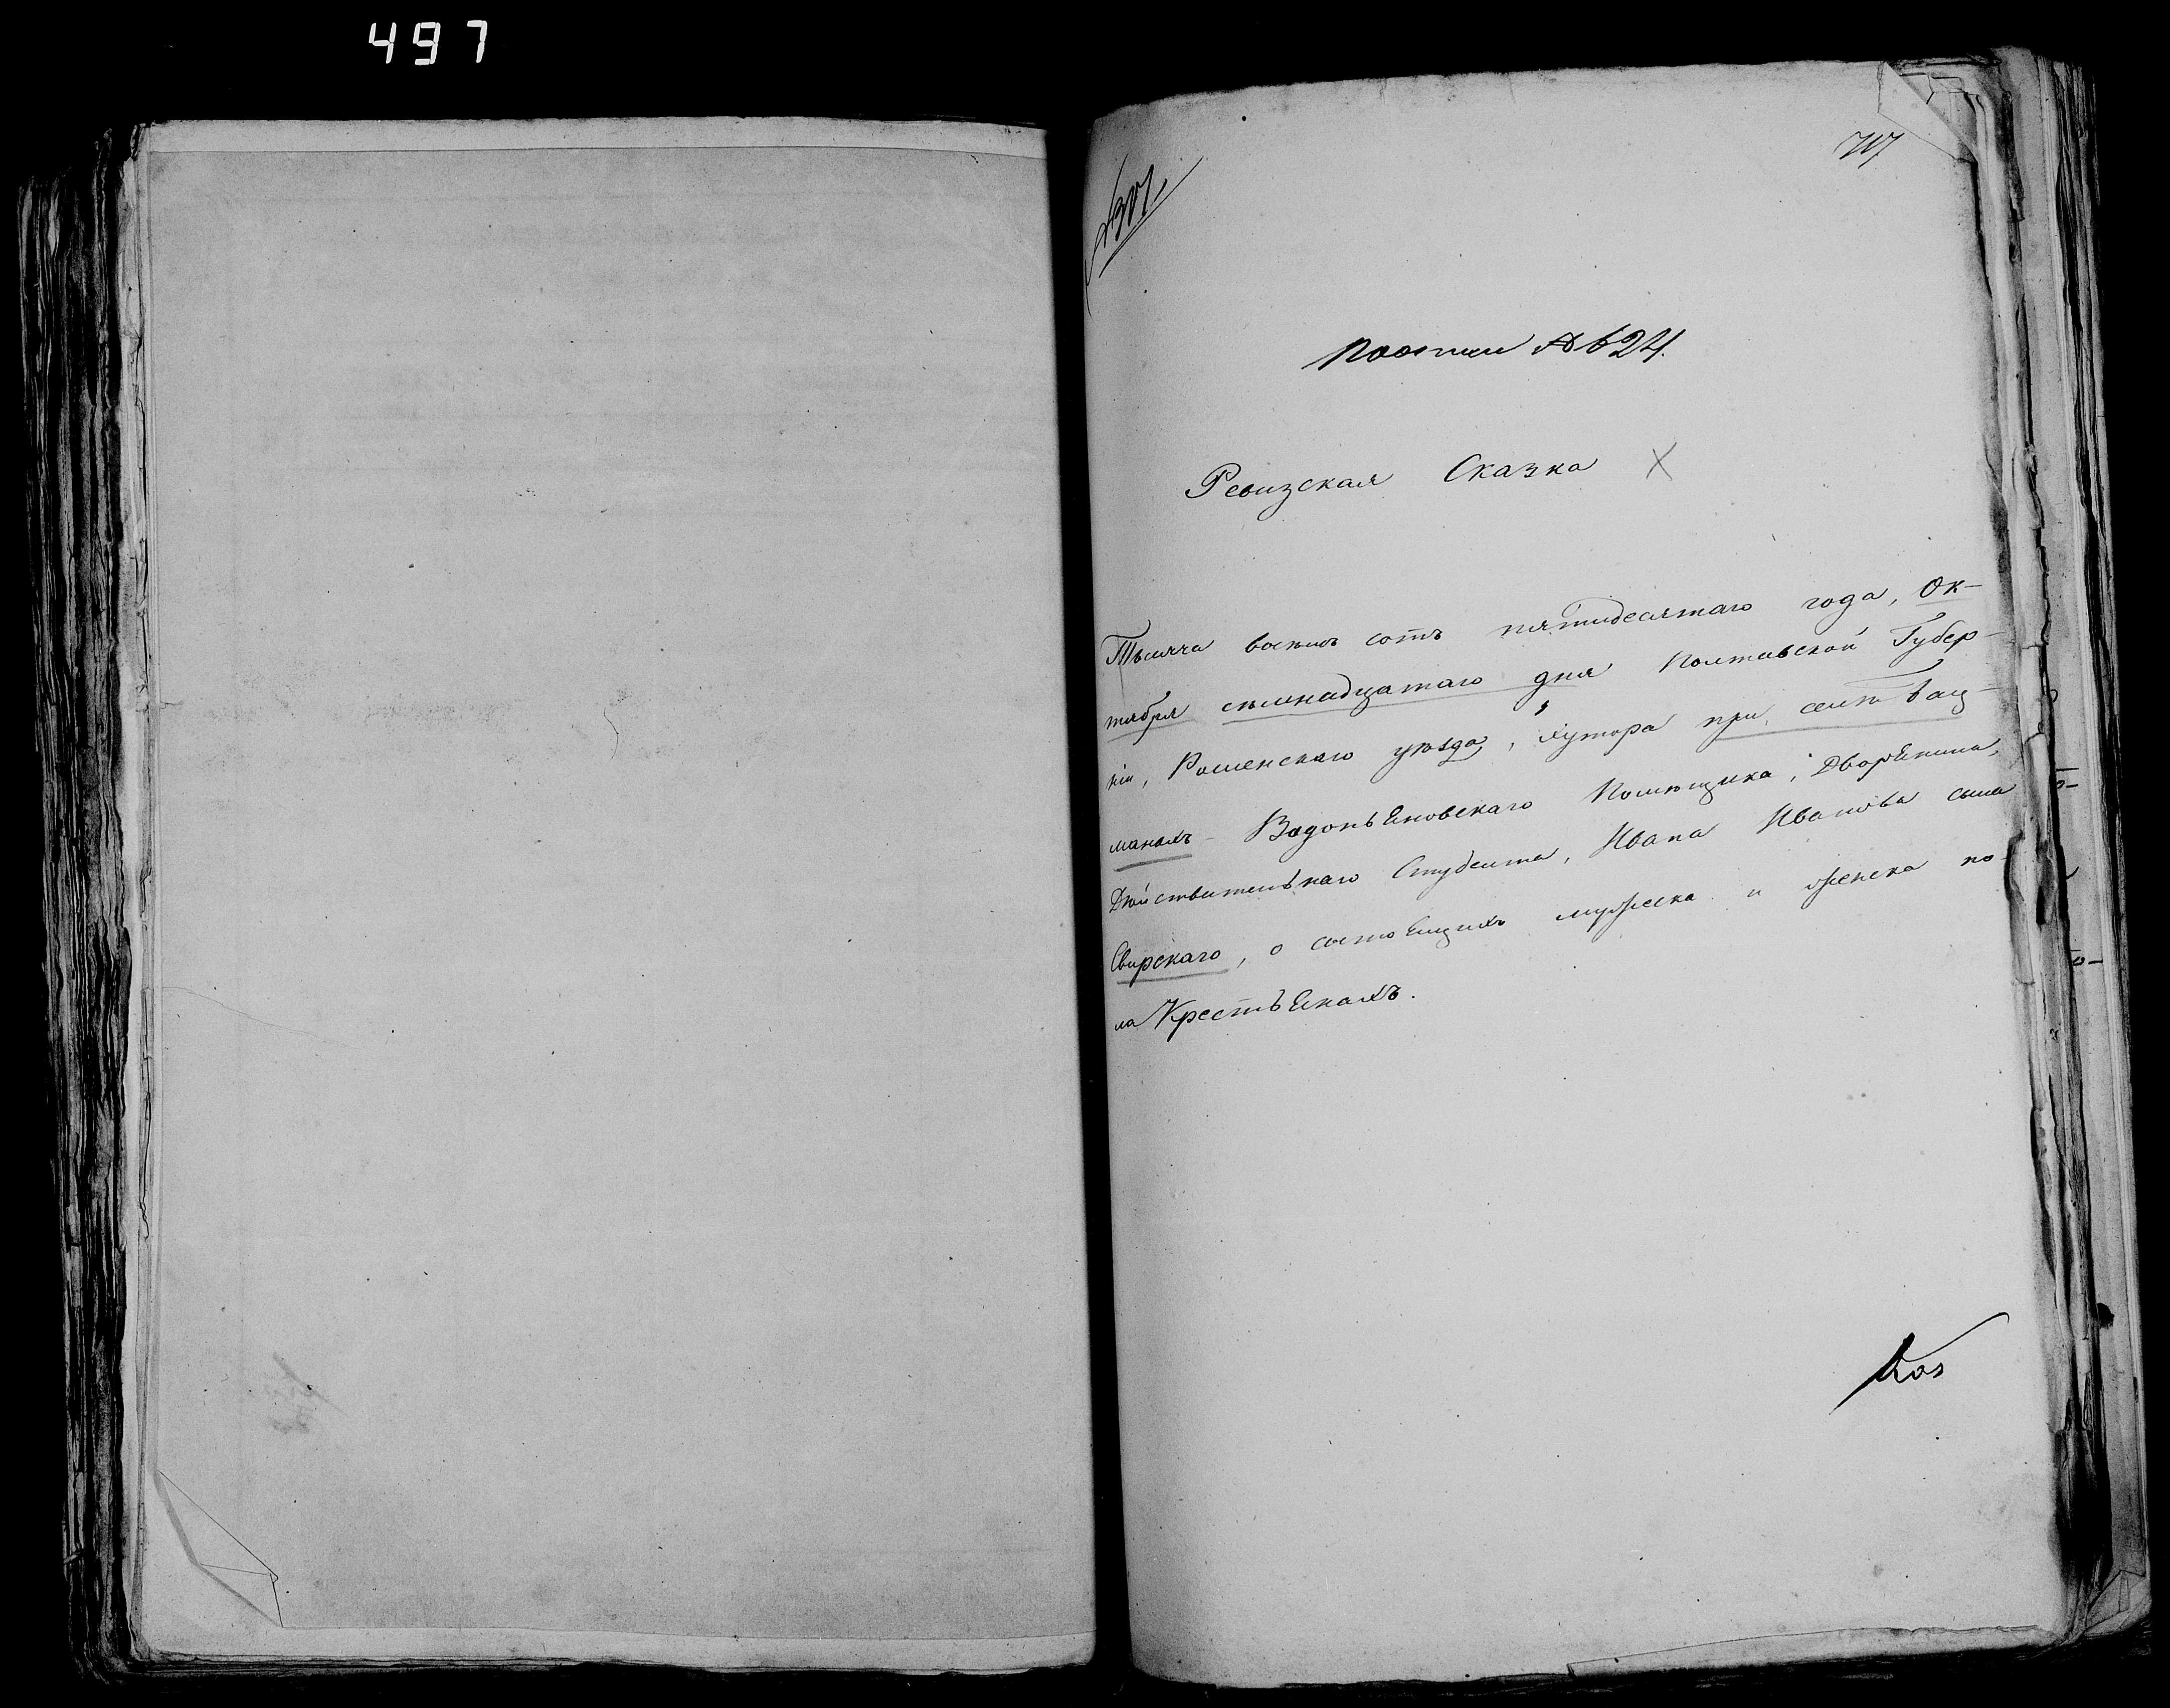 497
717
почтии № 624.
Ревизская Сказка
Тысяча восемь сотъ пятидесятаго года, Ок-
тября семнадцатаго дня Полтавской Губер-
ніи, Роменскаго уѣзда, хутора при селѣ Бац-
манахъ Водопьяновскаго Помѣщика, Дворянина,
Дѣйствительнаго Студента, Ивана Иванова сына
Свирскаго, о состоящихъ мужеска и женска по-
ла Крестьянахъ.